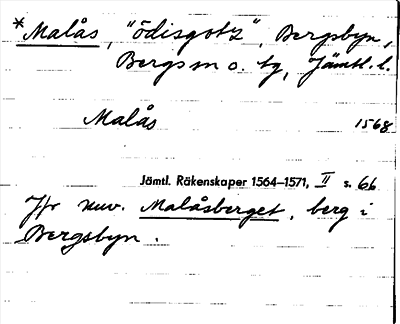 *Malås, "ödisgotz", Bergsbyn,
Bergs sn o. tg, Jämtl. l.
Malås 1568
Jämtl. Räkenskaper 1564–1571, II s. 66
Jfr nuv. Malåsberget, berg i
Bergsbyn.